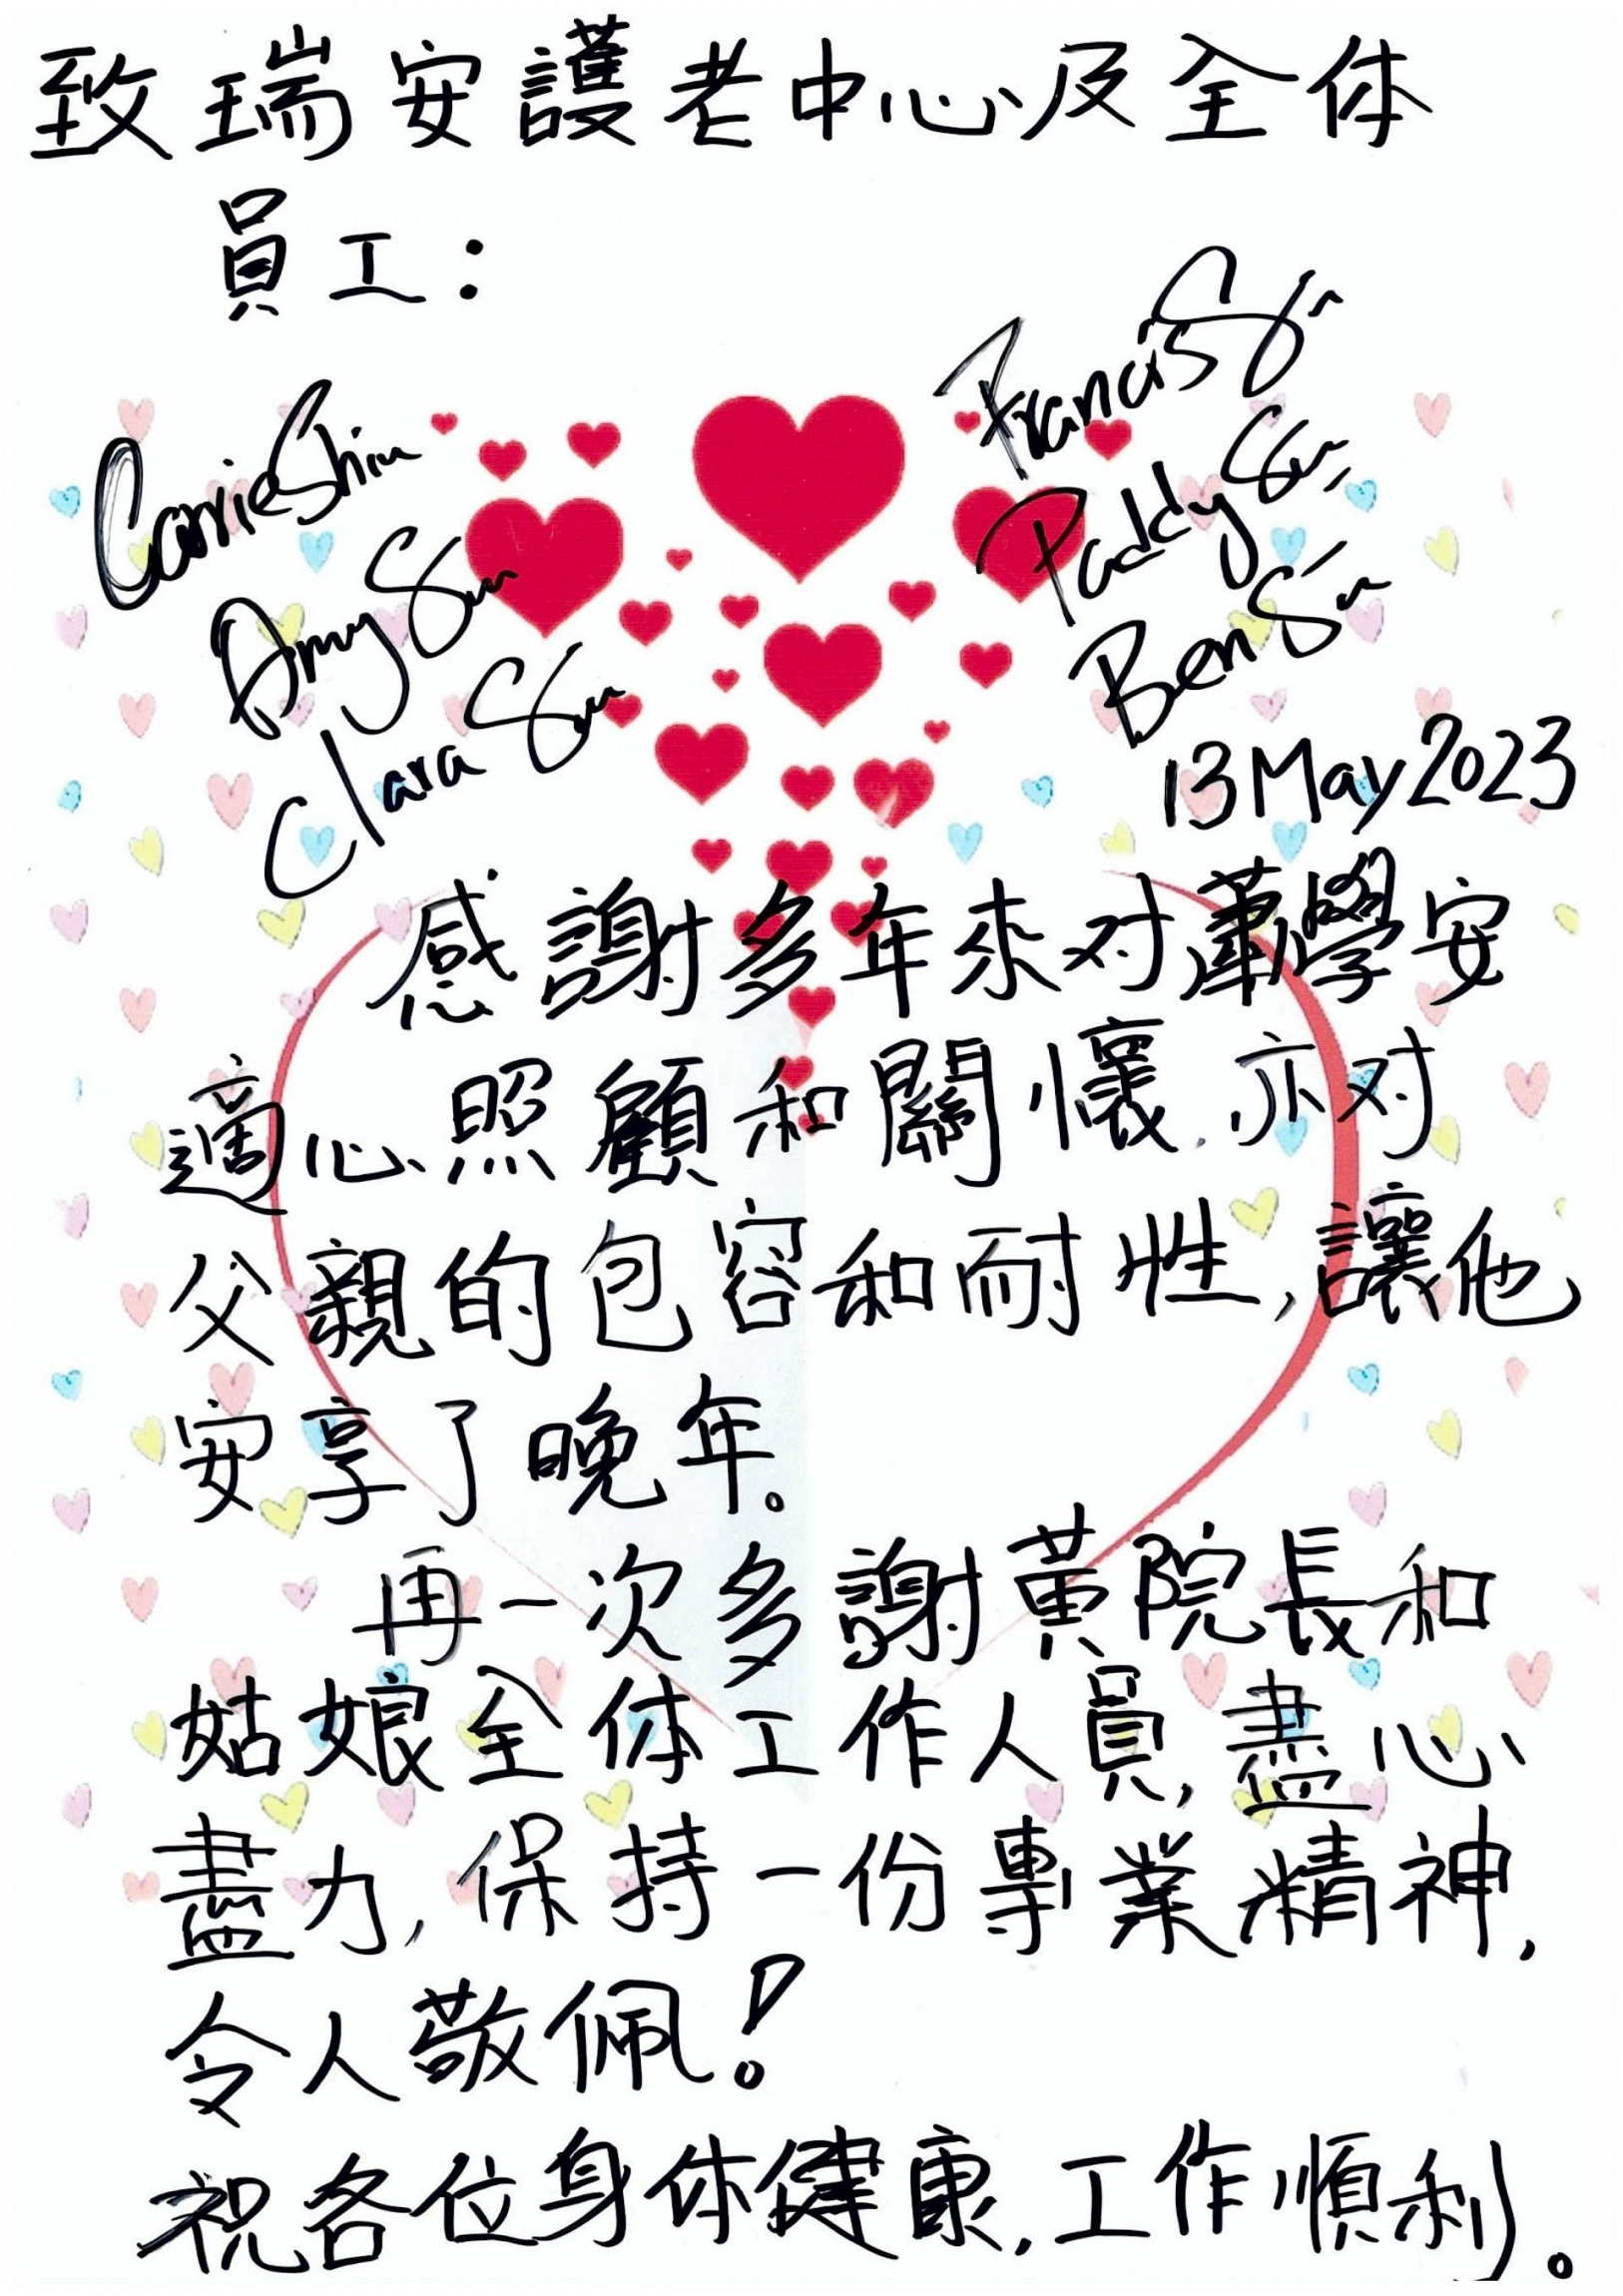 致瑞安護老中心及全体
員工：
Carrie Shiu
Amy Siu
Clara Siu
Francis Siu
Paddy Siu
Ben Siu
13 May 2023
感謝多年来对蕭學安
適心照顧和關懷，亦对
父親的包容和耐性，讓他
安享了晚年。
再一次多謝黃院長和
姑娘全体工作人員，盡心
盡力，保持一份專業精神，
令人敬佩！
祝各位身体健康，工作順利。